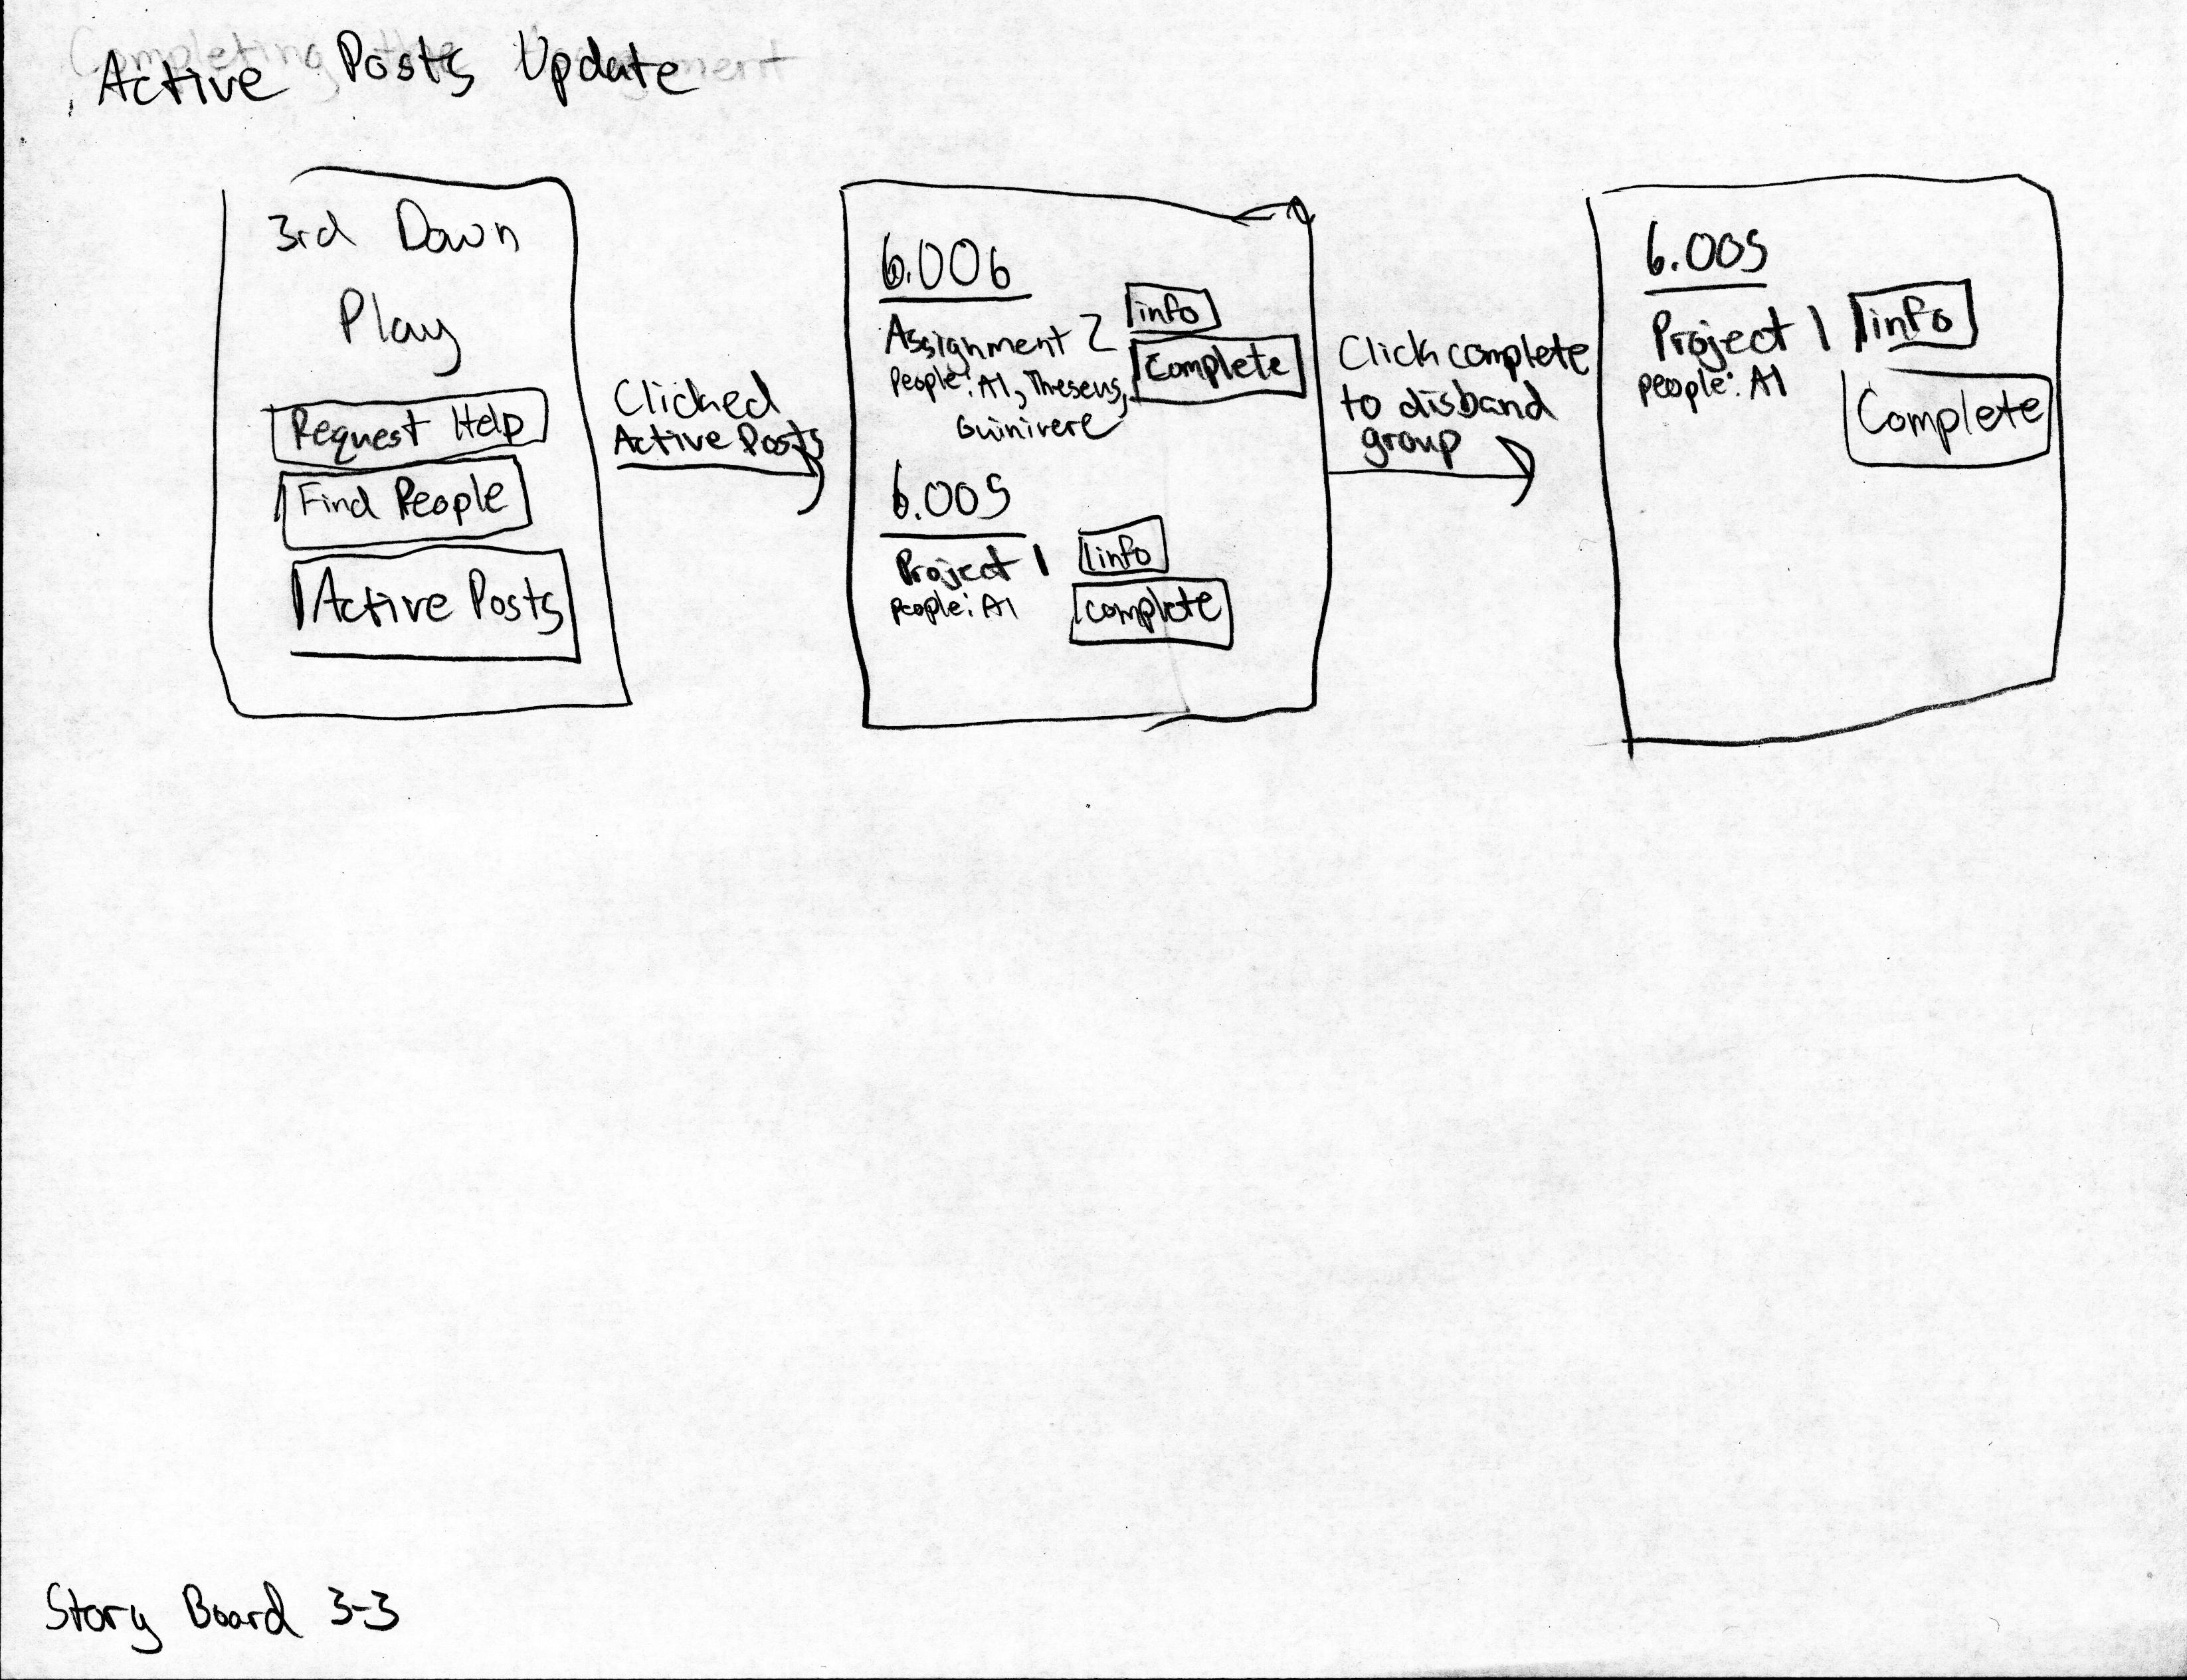 Completing the
Active Posts Update
3rd Down
Play
Request Help
Find People
Active Posts
Clicked
Active Posts
6.006
Assignment 2
info
Complete
People: Al, Theseus,
Guinivere
6.005
Project 1
info
people: Al
complete
Click complete
to disband
group
6.005
Project 1
info
people: Al
Complete
Story Board 3-3